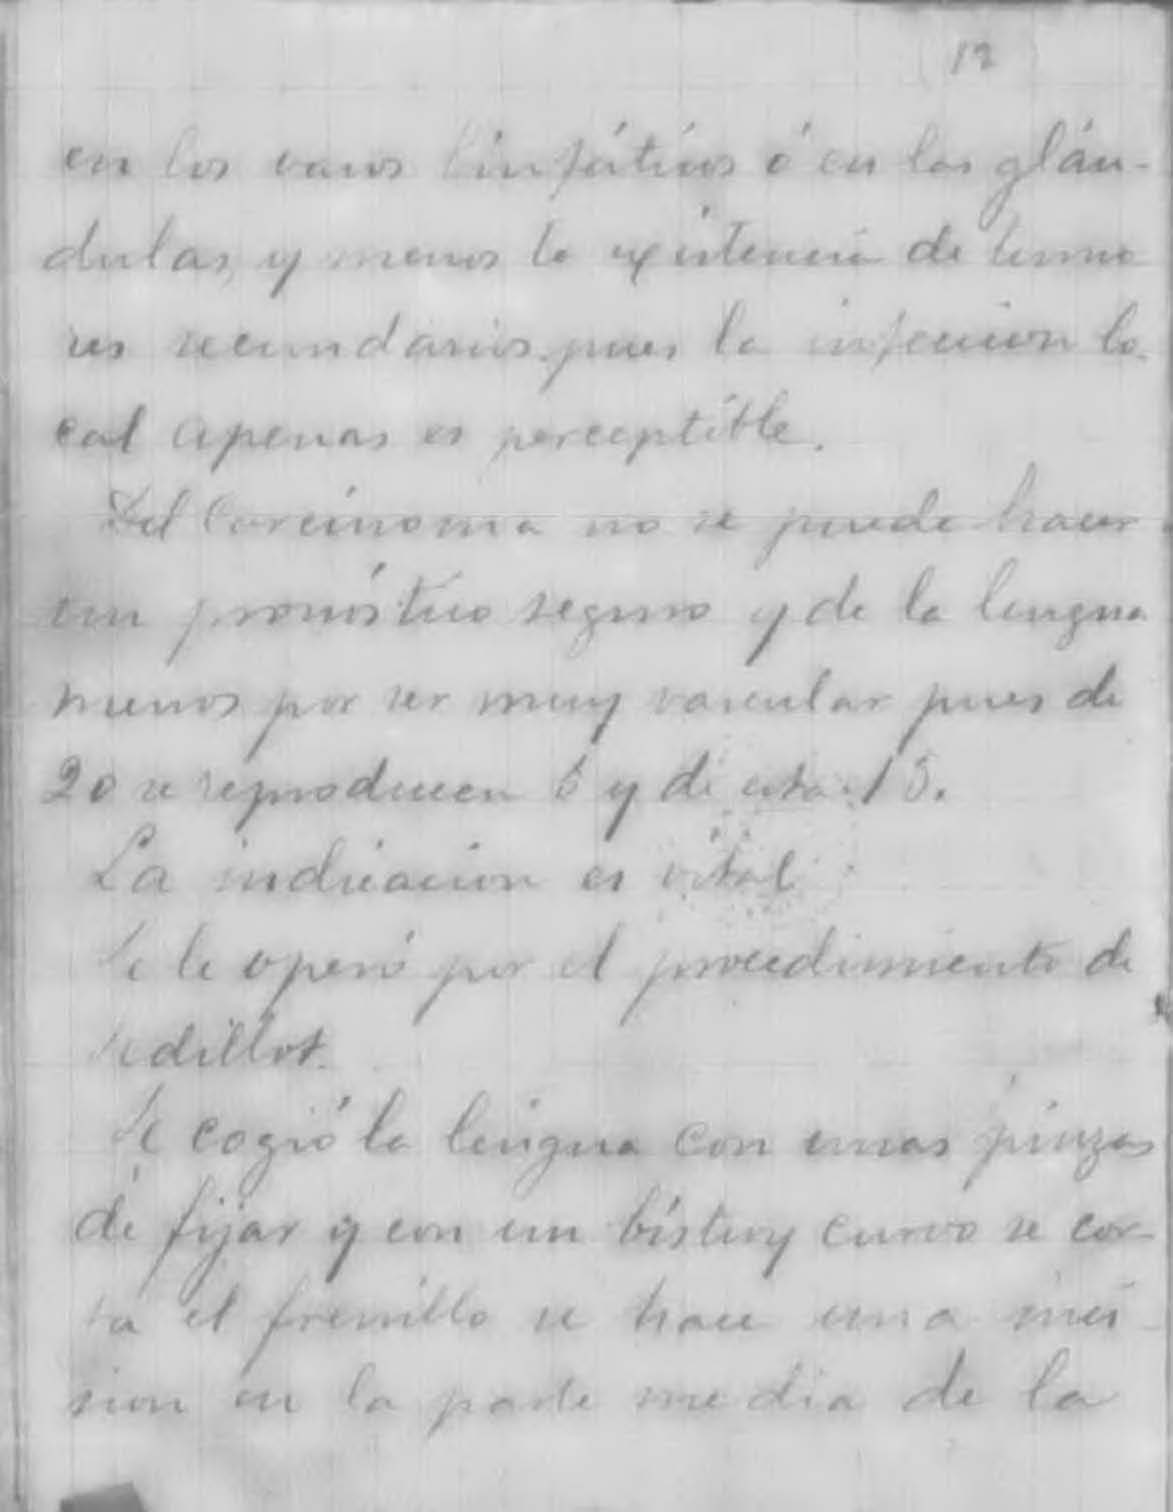 12
en los vasos linfáticos ó en las glán-
dulas, y menos la existencia de tumo
res secundarios pues la infeccion lo-
cal apenas es perceptible.
Del Carcinoma no se puede hacer
un pronóstico seguro y de la lengua
menos por ser muy vascular pues de
20 se reproducen 5 y de esta 15.
La indicacion es vital
Se le operó por el procedimiento de
Sedillot.
Se cogió la lengua con unas pinzas
de fijar y con un bistury curvo se cor-
ta el frenillo se hace una inci-
sion en la parte media de la